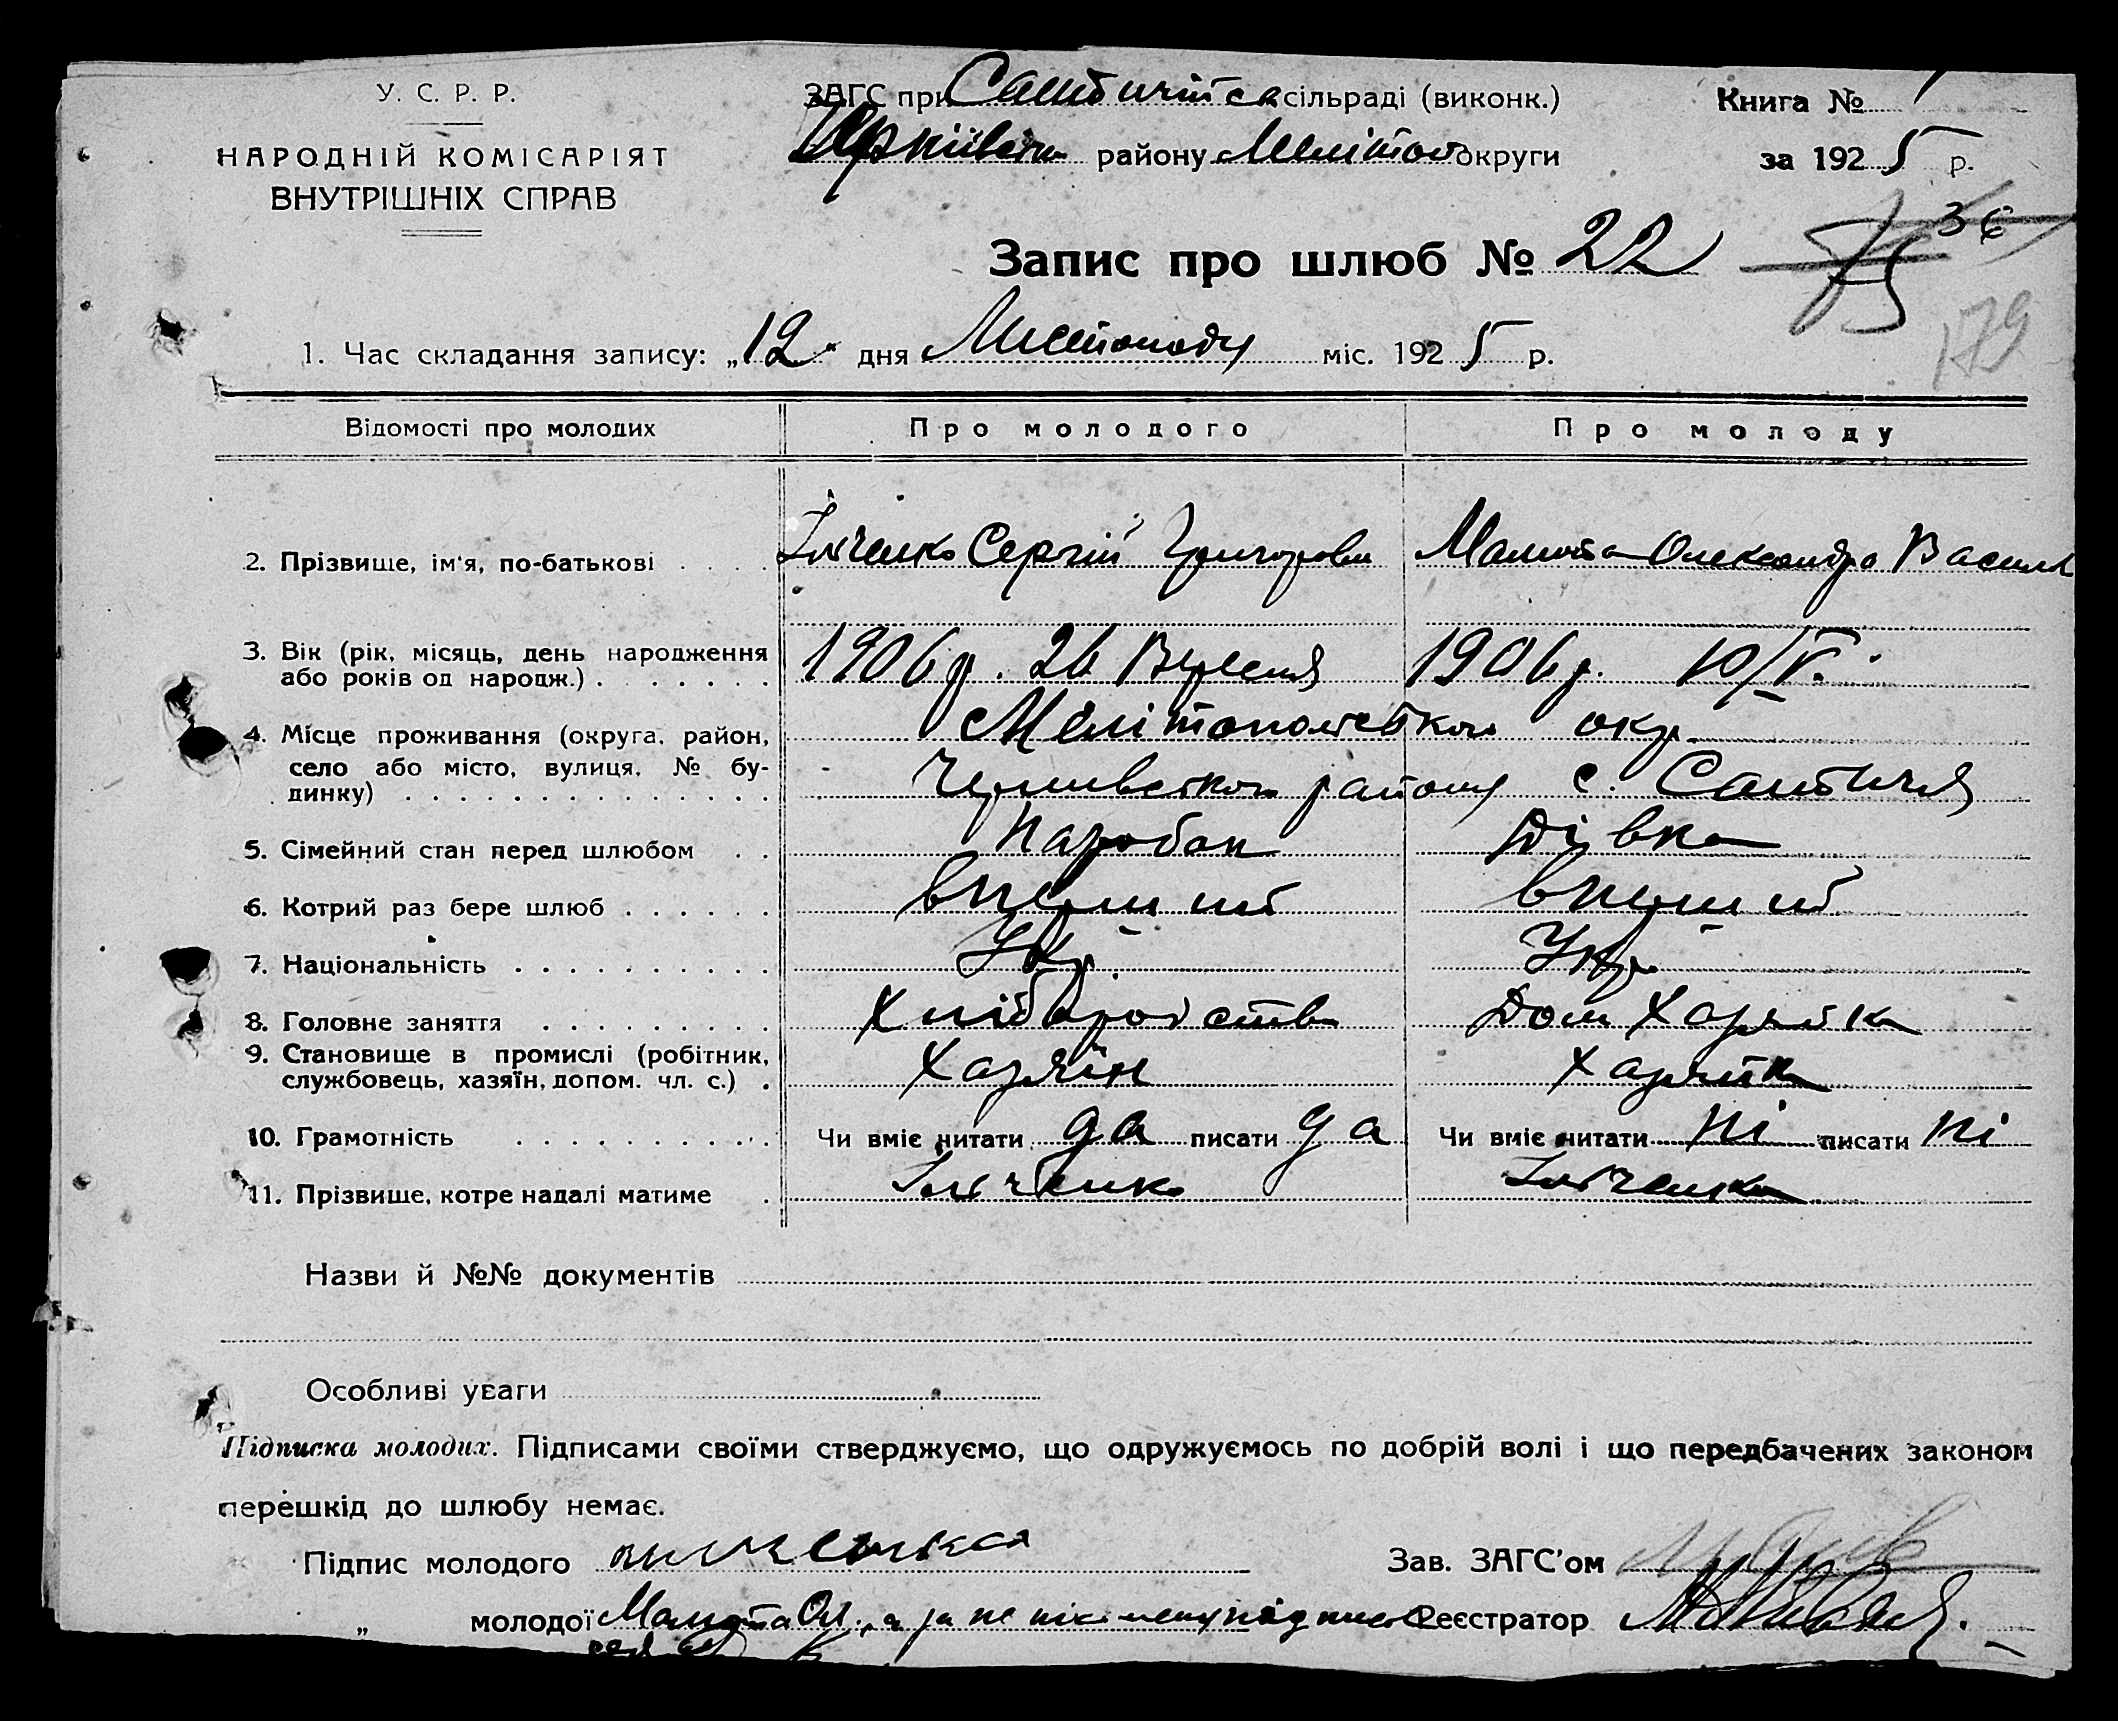 У. С. Р. Р.
НАРОДНІЙ КОМІСАРІЯТ
ВНУТРІШНІХ СПРАВ
ЗАГС при сільраді (виконк.)
району Мелітоп округи
Книга № 1
за 1925 р.
36
Запис про шлюб № 22
179
1. Час складання запису: „12" дня Листопаду міс. 1925 р.
Відомості про молодих Про молодого Про молоду
2. Прізвище, ім'я, по-батькові Ільченко Сергій Григоров Мамота Олександра Васил
3. Вік (рік, місяць, день народження або років од народж.) 1906 р. 26 Вересня 1906 р. 10/V.
4. Місце проживання (округа, район, село або місто, вулиця, № будинку) Мелітопольського окр.
району с.
5. Сімейний стан перед шлюбом Паробок Дівка
6. Котрий раз бере шлюб вперший вперший
7. Національність Укр. Укр.
8. Головне заняття Хліборобство Дом Хазяйка
9. Становище в промислі (робітник, службовець, хазяїн, допом. чл. с.) Хазяїн Хазяйка
10. Грамотність Чи вміє читати да писати да Чи вміє читати ні писати ні
11. Прізвище, котре надалі матиме Ільченко Ільченко
Назви й №№ документів
Особливі уваги
Підписка молодих. Підписами своїми стверджуємо, що одружуємось по добрій волі і що передбачених законом
перешкід до шлюбу немає.
Підпис молодого Зав. ЗАГС'ом
„ молодої Мамота Ол. Реєстратор